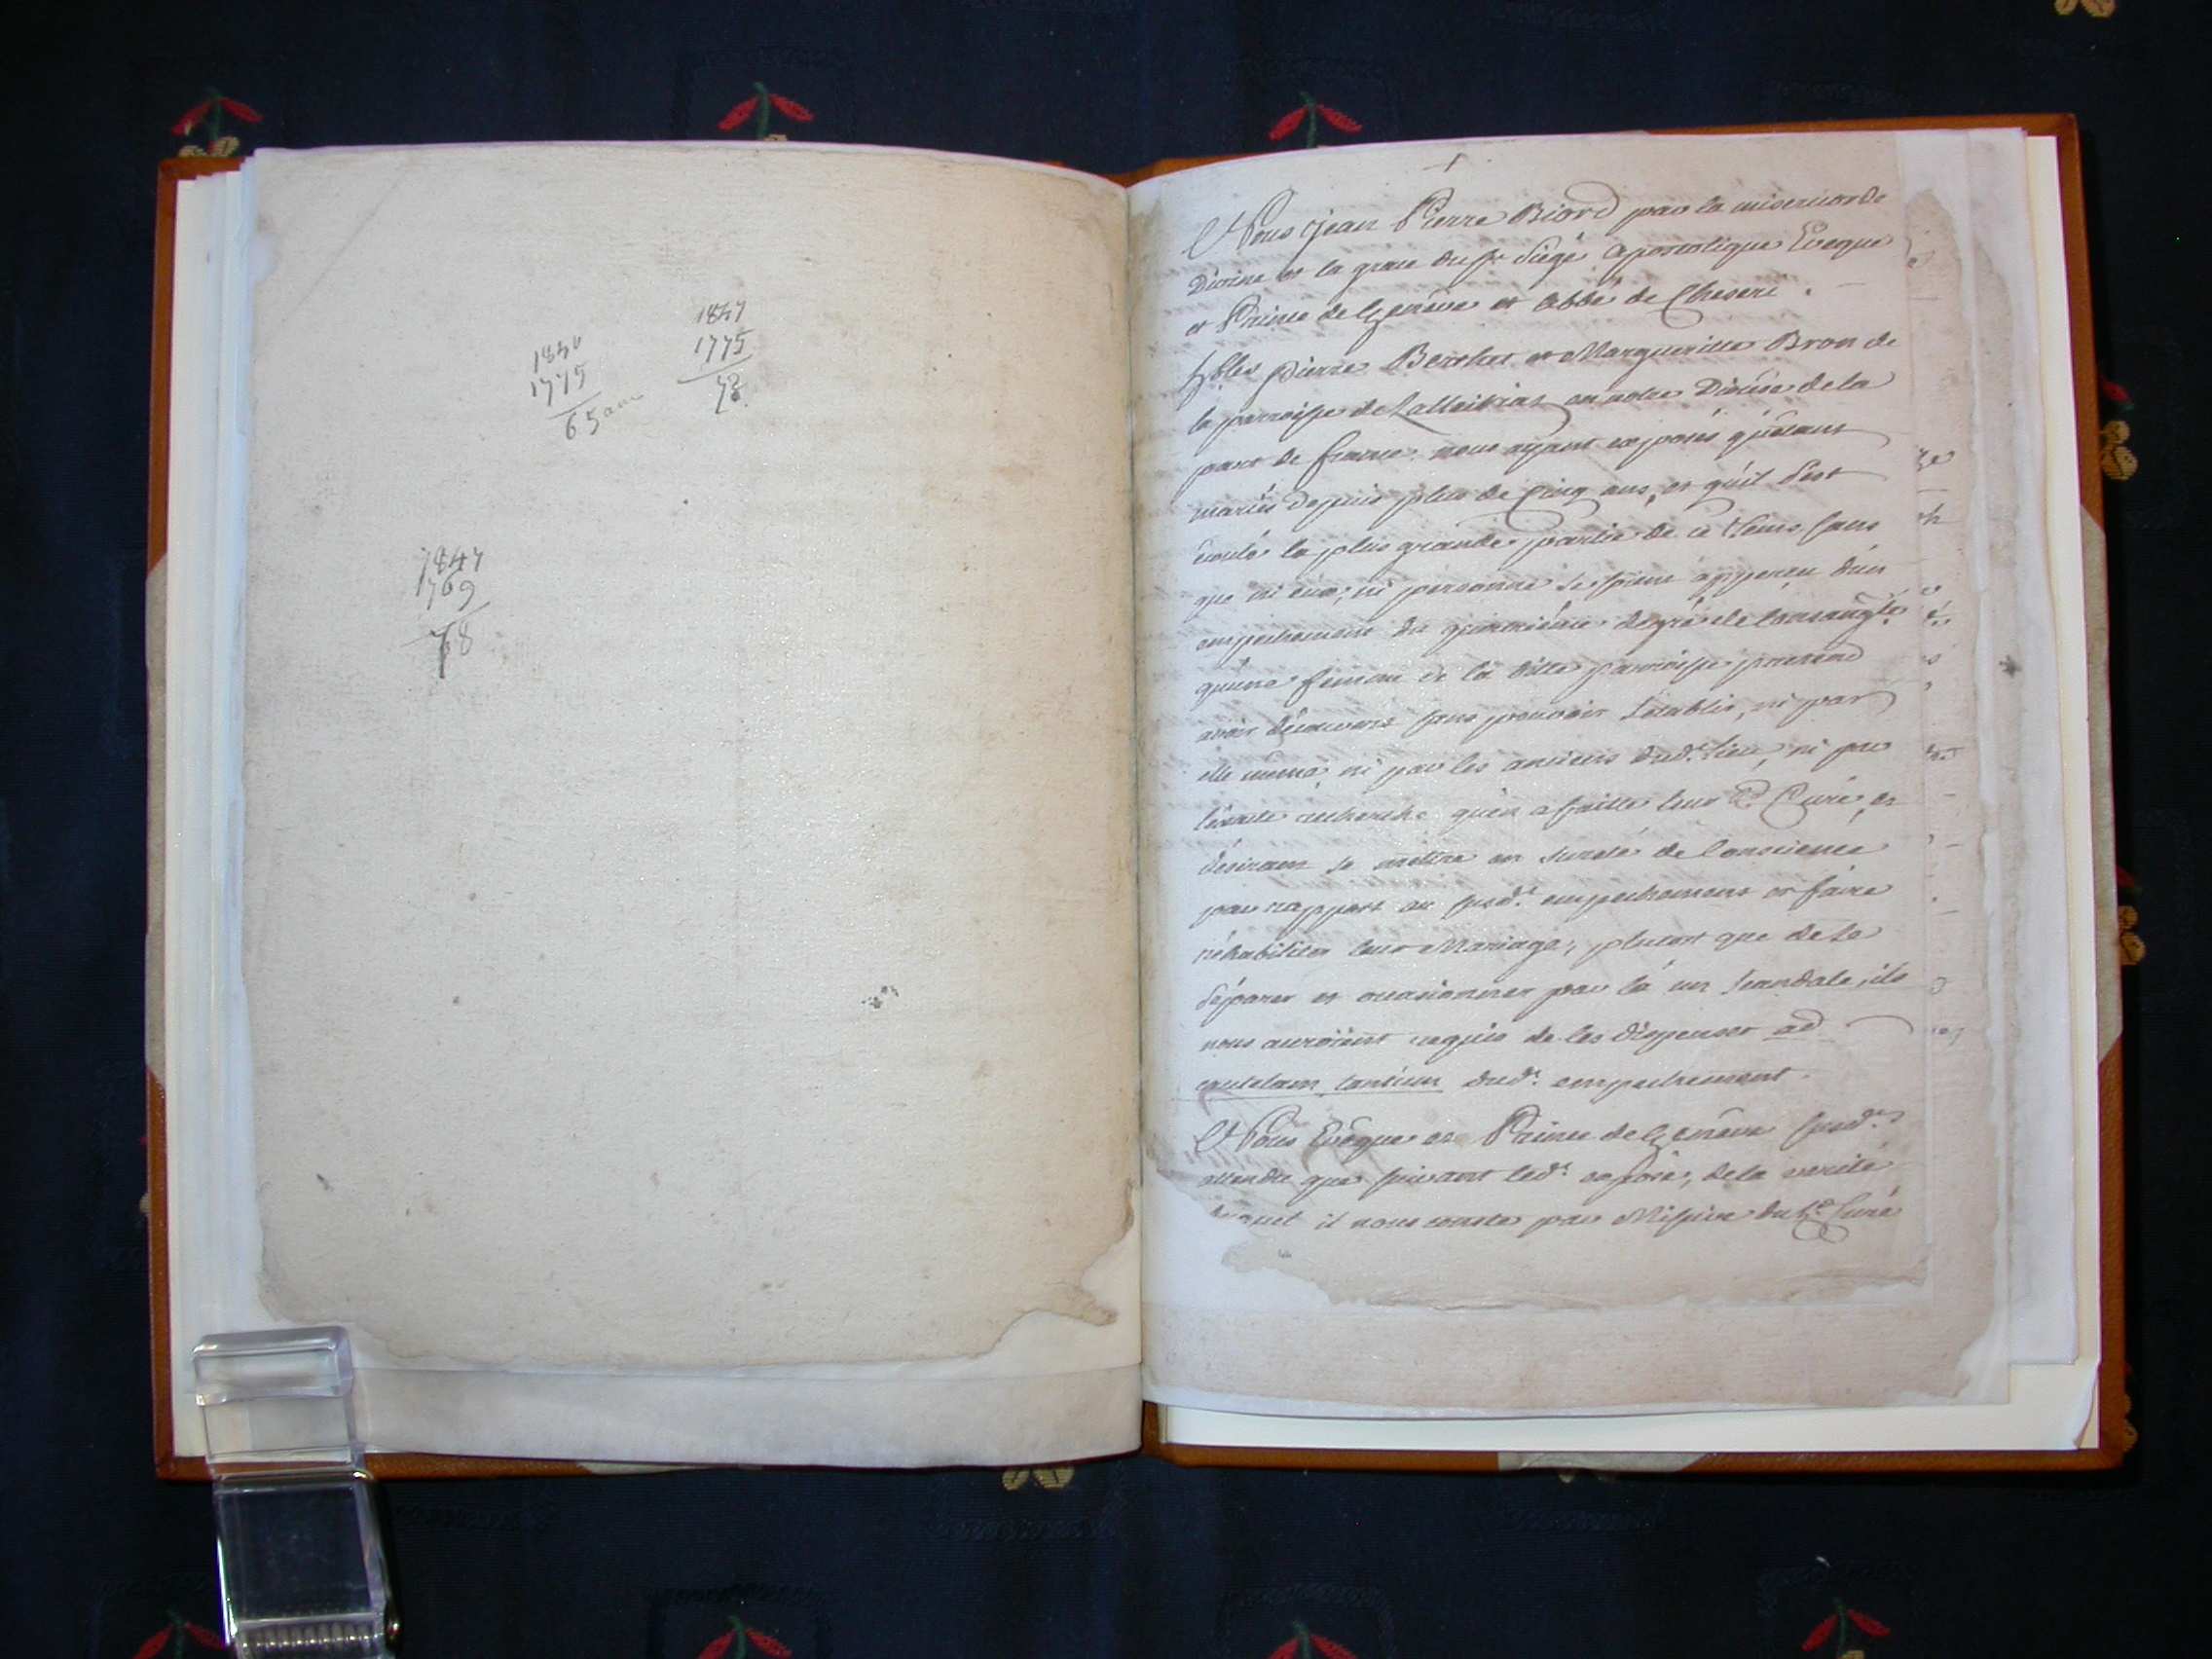 1840
1775
65 ans
1847
1775
72
1847
1769
78
Nous Jean Pierre Biord par la misericorde
Divine et la grace du St Siége Apostolique Eveque
et Prince de Genève et Abbé de Cheseri.
Hbles pierre Berthet et Margueritte Bron de
la parroisse de en notre Diocése de la
part de france nous ayant exposés qu'étant
mariés depuis plus de Cinq ans, et qu'il s'est
écoulé la plus grande partie de ce tems sans
que ni eux, ni personne se soient apperçu d'un
empechement du degré de Consangté
qu'une femme de la ditte parroisse pretend
avoir découvert sans pouvoir l'établir, ni par
elle meme, ni par les anciens dudt lieu, ni par
l'éxacte recherche qu'en a faitte leur Rd Curé, et
désirant se mettre en sureté de Conscience
par rapport au susdt empechement et faire
réhabiliter leur Mariage, plutost que de se
séparer et occasionner par là un scandale, ils
nous auroient requis de les dispenser ad
cautelam tantum dudt empechement.
Nous Evêque et Prince de Genève susdt
attendu que suivant ledt exposé, de la verité
duquel il nous conste par Missive du Rd Curé